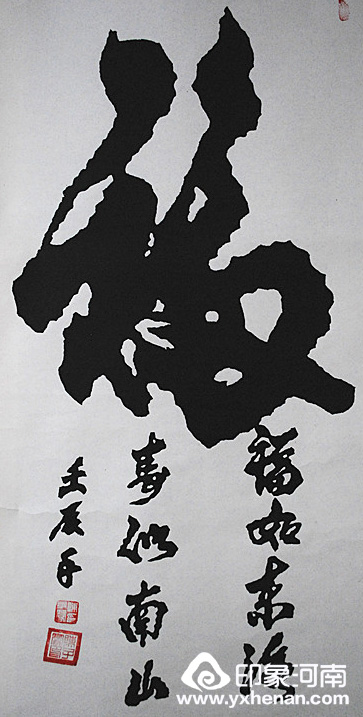 福如東海
寿似南山
壬辰年
印象河南
www.yxhenan.com